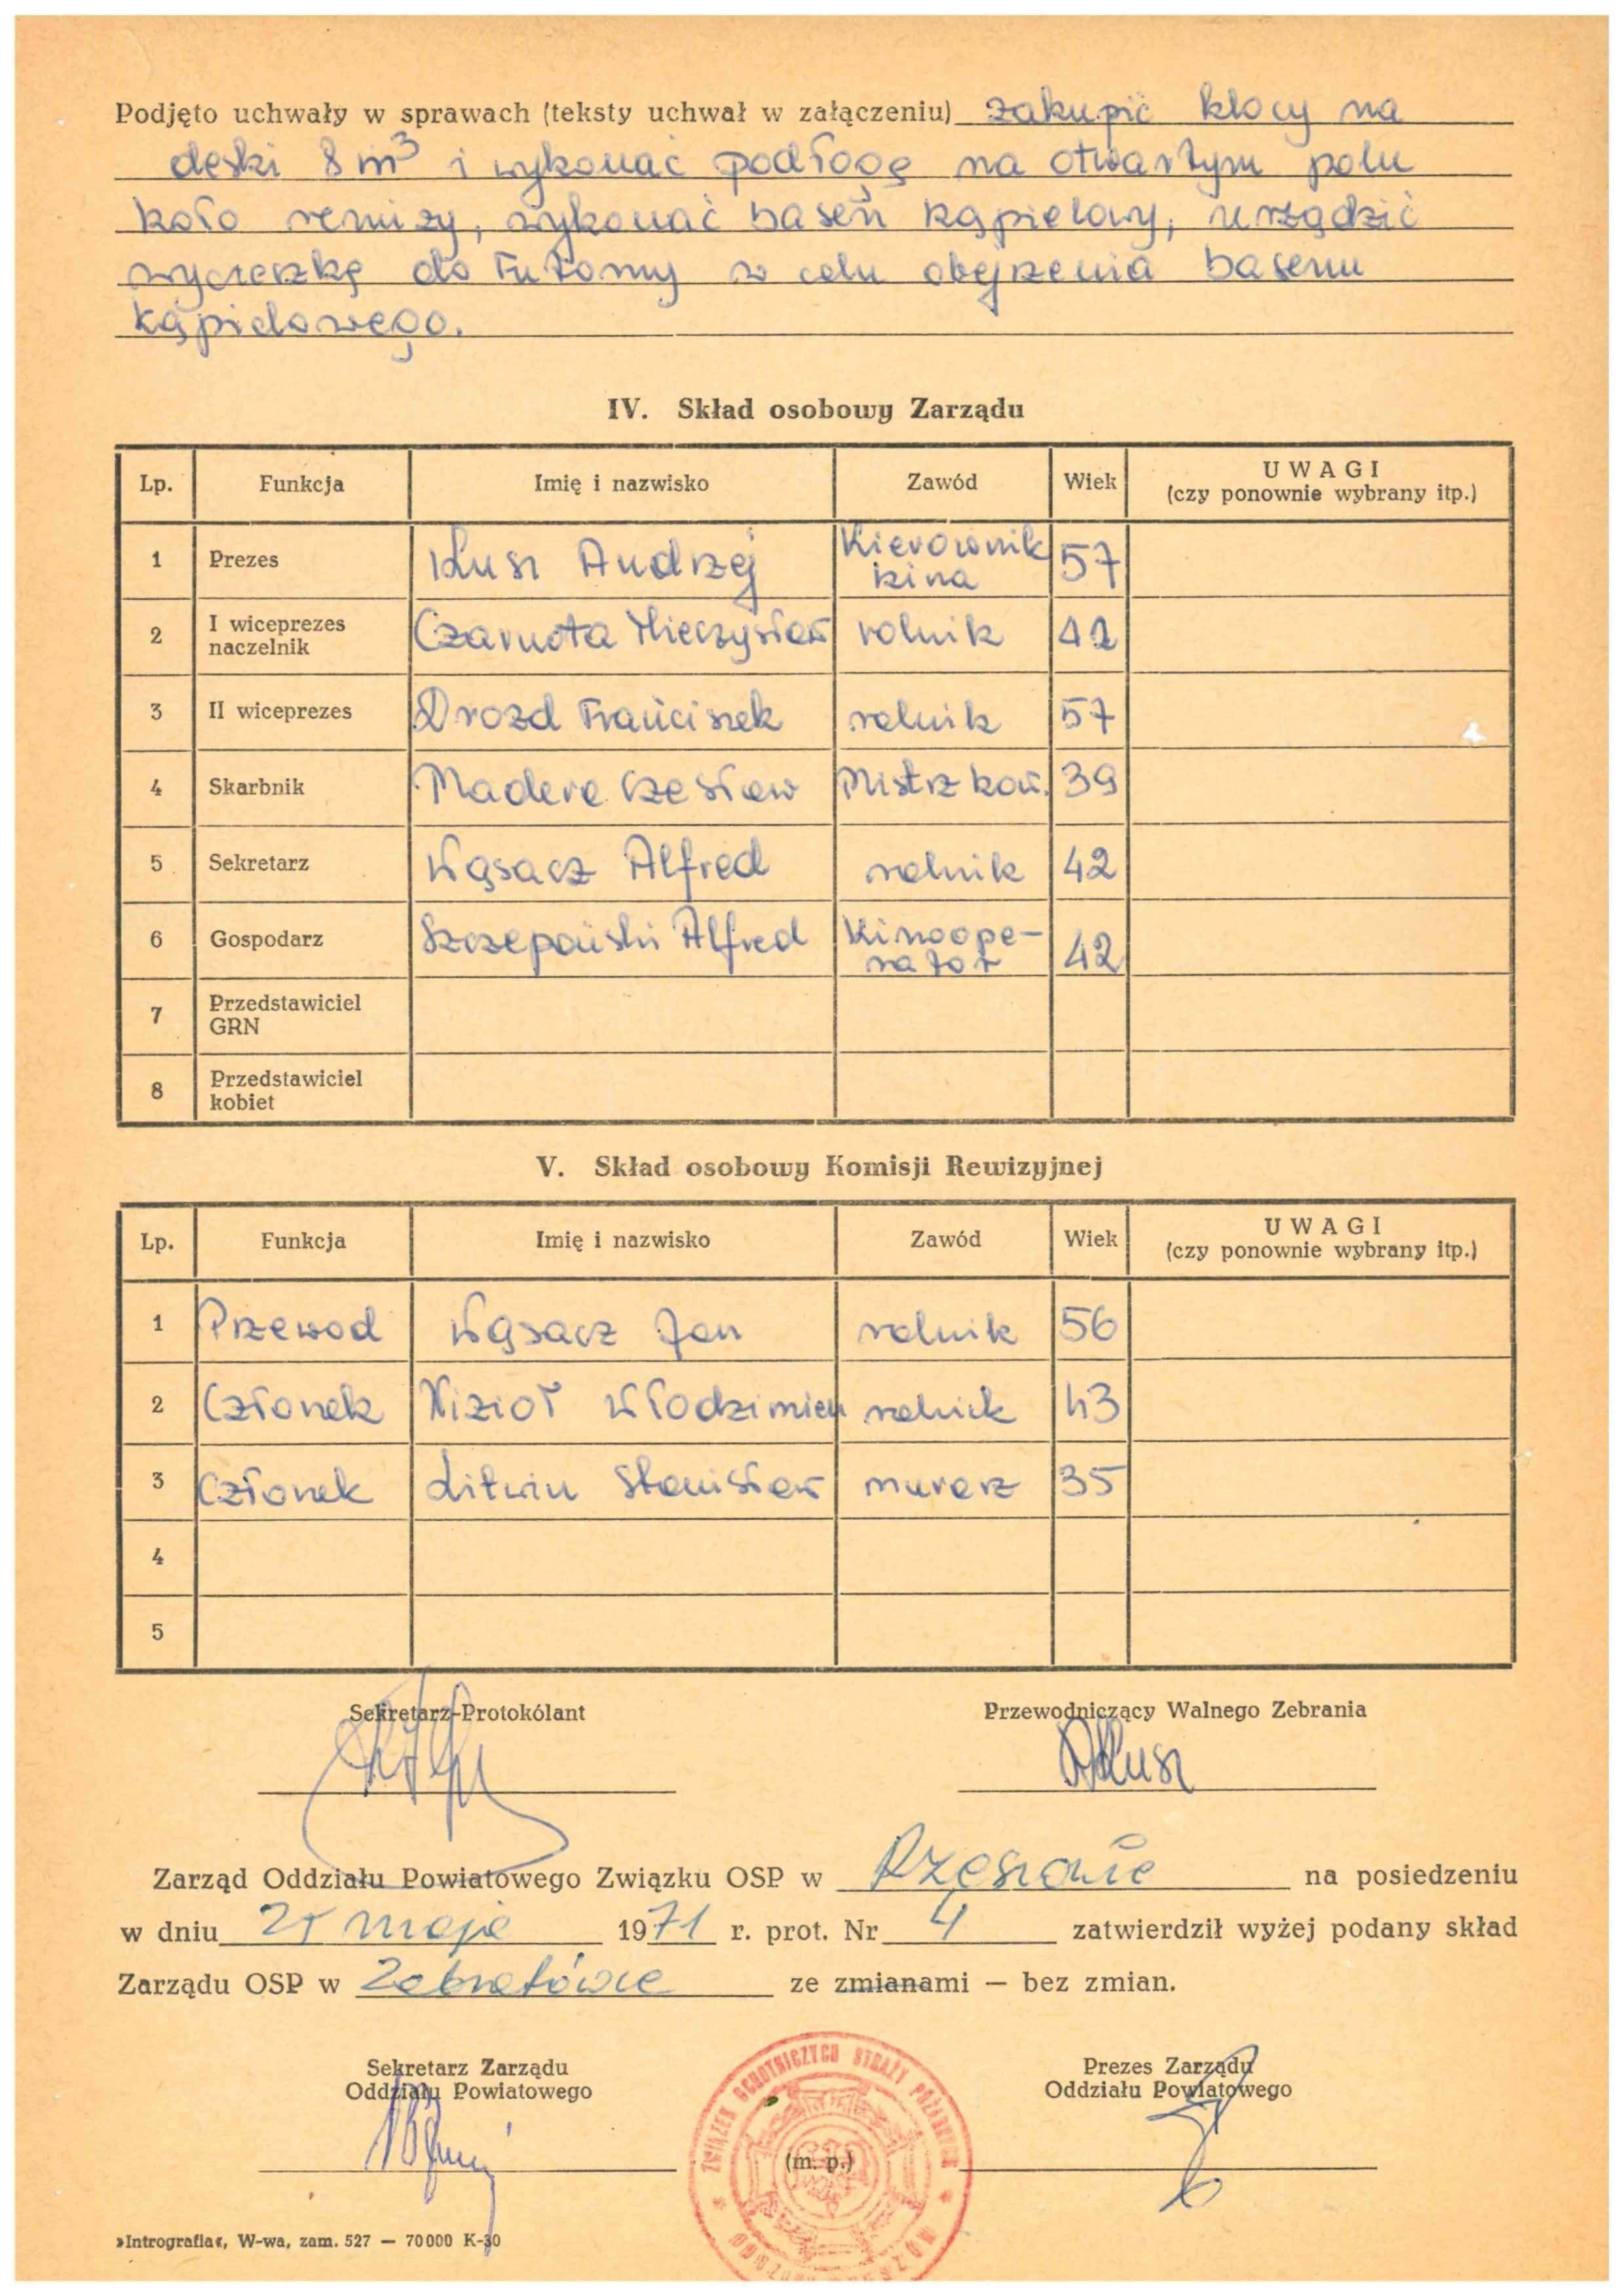 Podjęto uchwały w sprawach (teksty uchwał w załączeniu) zakupić klocy na
deski 8 m³ i wykonać podłogę na otwartym polu
koło remizy, wykonać basen kąpielowy, urządzić
wycieczkę do Lutoryy w celu obejrzenia basenu
kąpielowego.
IV. Skład osobowy Zarządu
Lp. Funkcja Imię i nazwisko Zawód Wiek UWAGI
(czy ponownie wybrany itp.)
1 Prezes Kusz Andrzej Kierownik kina 57
2 I wiceprezes naczelnik Czarnota Mieczysław rolnik 42
3 II wiceprezes Drozd Franciszek rolnik 57
4 Skarbnik Madera Czesław Mistrz kow. 39
5 Sekretarz Wąsacz Alfred rolnik 42
6 Gospodarz Szczepański Alfred Kinoope-
rator 42
7 Przedstawiciel GRN
8 Przedstawiciel kobiet
V. Skład osobowy Komisji Rewizyjnej
Lp. Funkcja Imię i nazwisko Zawód Wiek UWAGI
(czy ponownie wybrany itp.)
1 Przewod Wąsacz Jan rolnik 56
2 Członek Nizioł Włodzimierz rolnik 43
3 Członek Litwin Stanisław murarz 35
4
5
Sekretarz-Protokólant Przewodniczący Walnego Zebrania
AKusz
Zarząd Oddziału Powiatowego Związku OSP w Rzeszowie na posiedzeniu
w dniu 25 maja 1971 r. prot. Nr 4 zatwierdził wyżej podany skład
Zarządu OSP w Zabratówce ze zmianami — bez zmian.
Sekretarz Zarządu
Oddziału Powiatowego
Prezes Zarządu
Oddziału Powiatowego
ZWIĄZEK OCHOTNICZYCH STRAŻY POŻARNYCH
(m. p.)
»Intrografia«, W-wa, zam. 527 — 70000 K-30